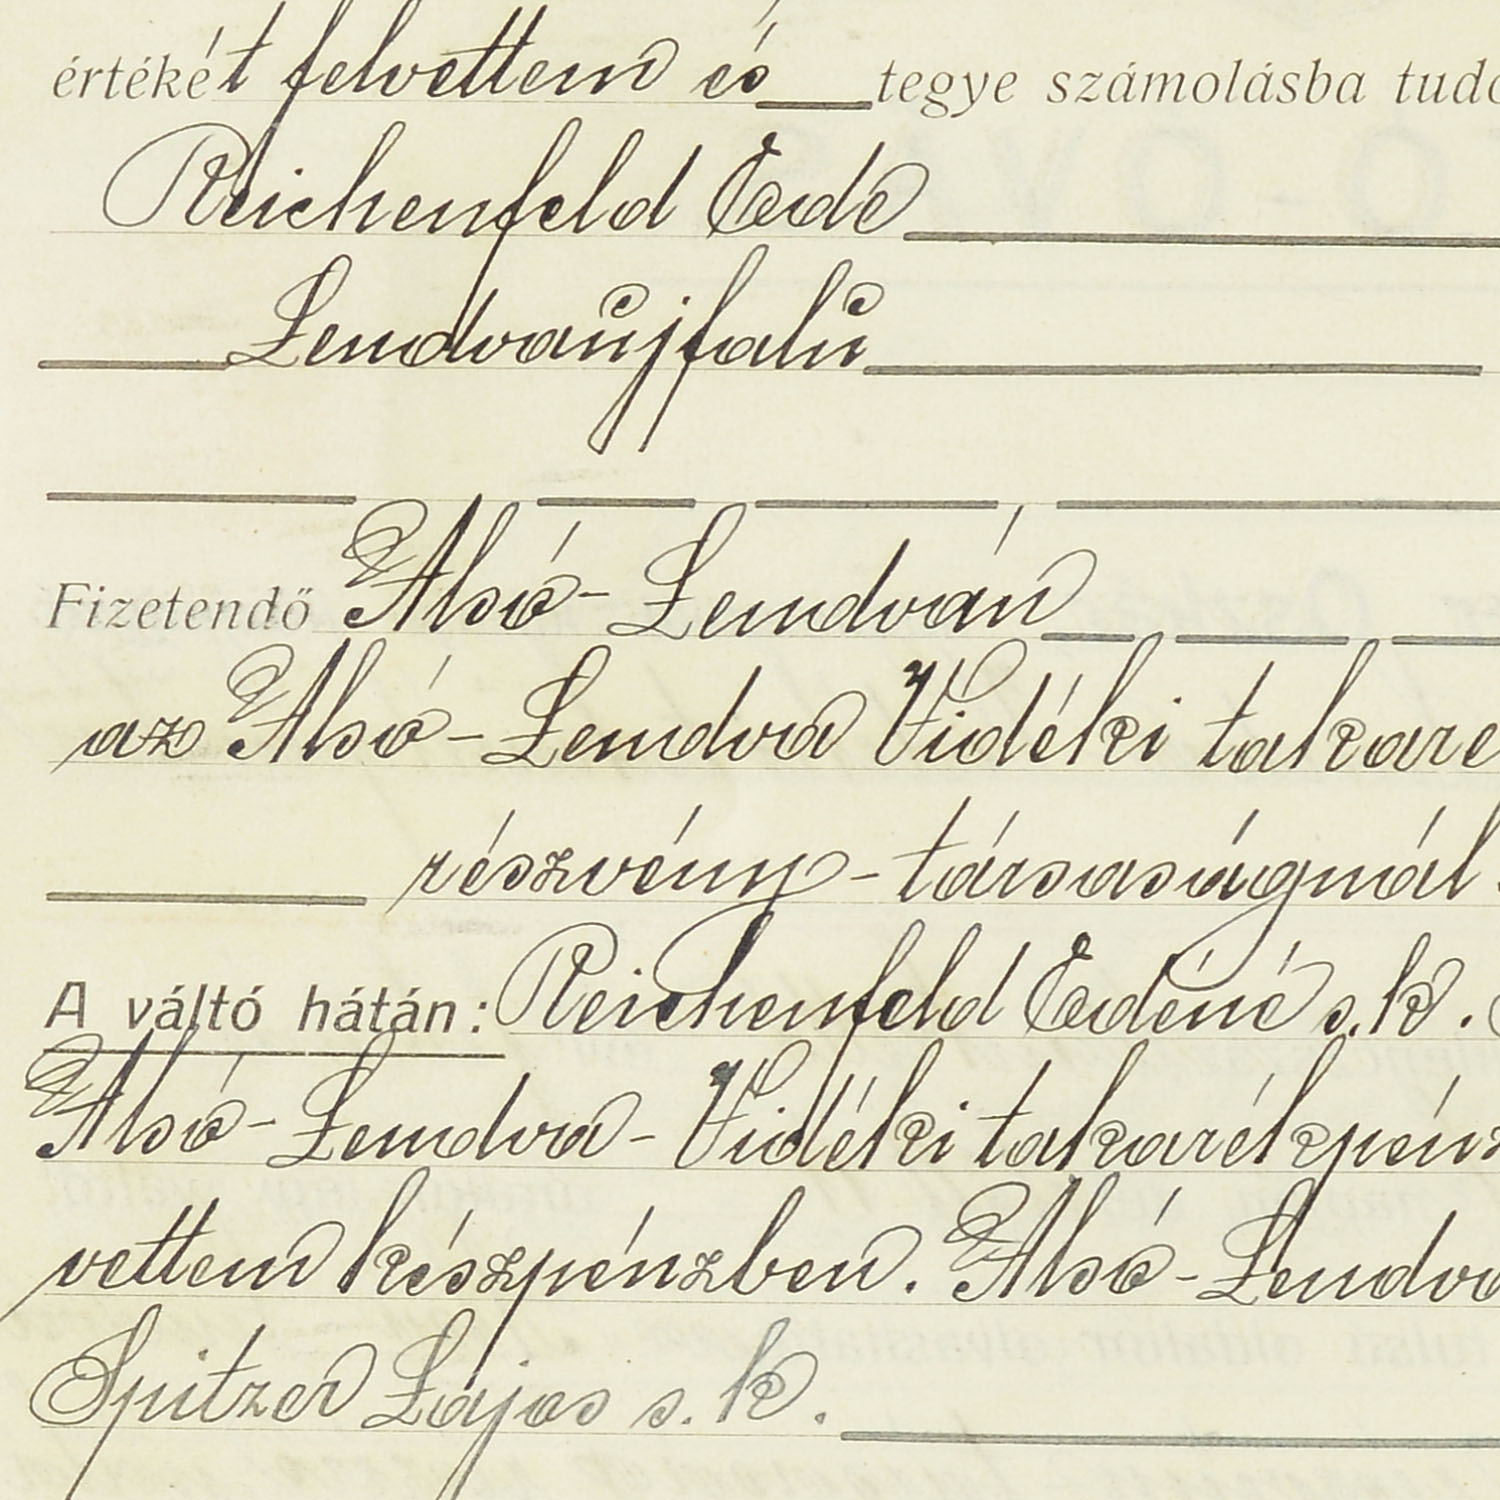 értékét felvettem és tegye számolásba
Reichenfeld Ede
Lendvaújfalu
Fizetendő Alsó-Lendván
az Alsó-Lendva Vidéki takaré
részvény-társaságnál
A váltó hátán: Reichenfeld Edéné s.k.
Alsó-Lendva-Vidéki takarékpénz
vettem készpénzben. Alsó-Lendva
Spitzer Lajos s.k.